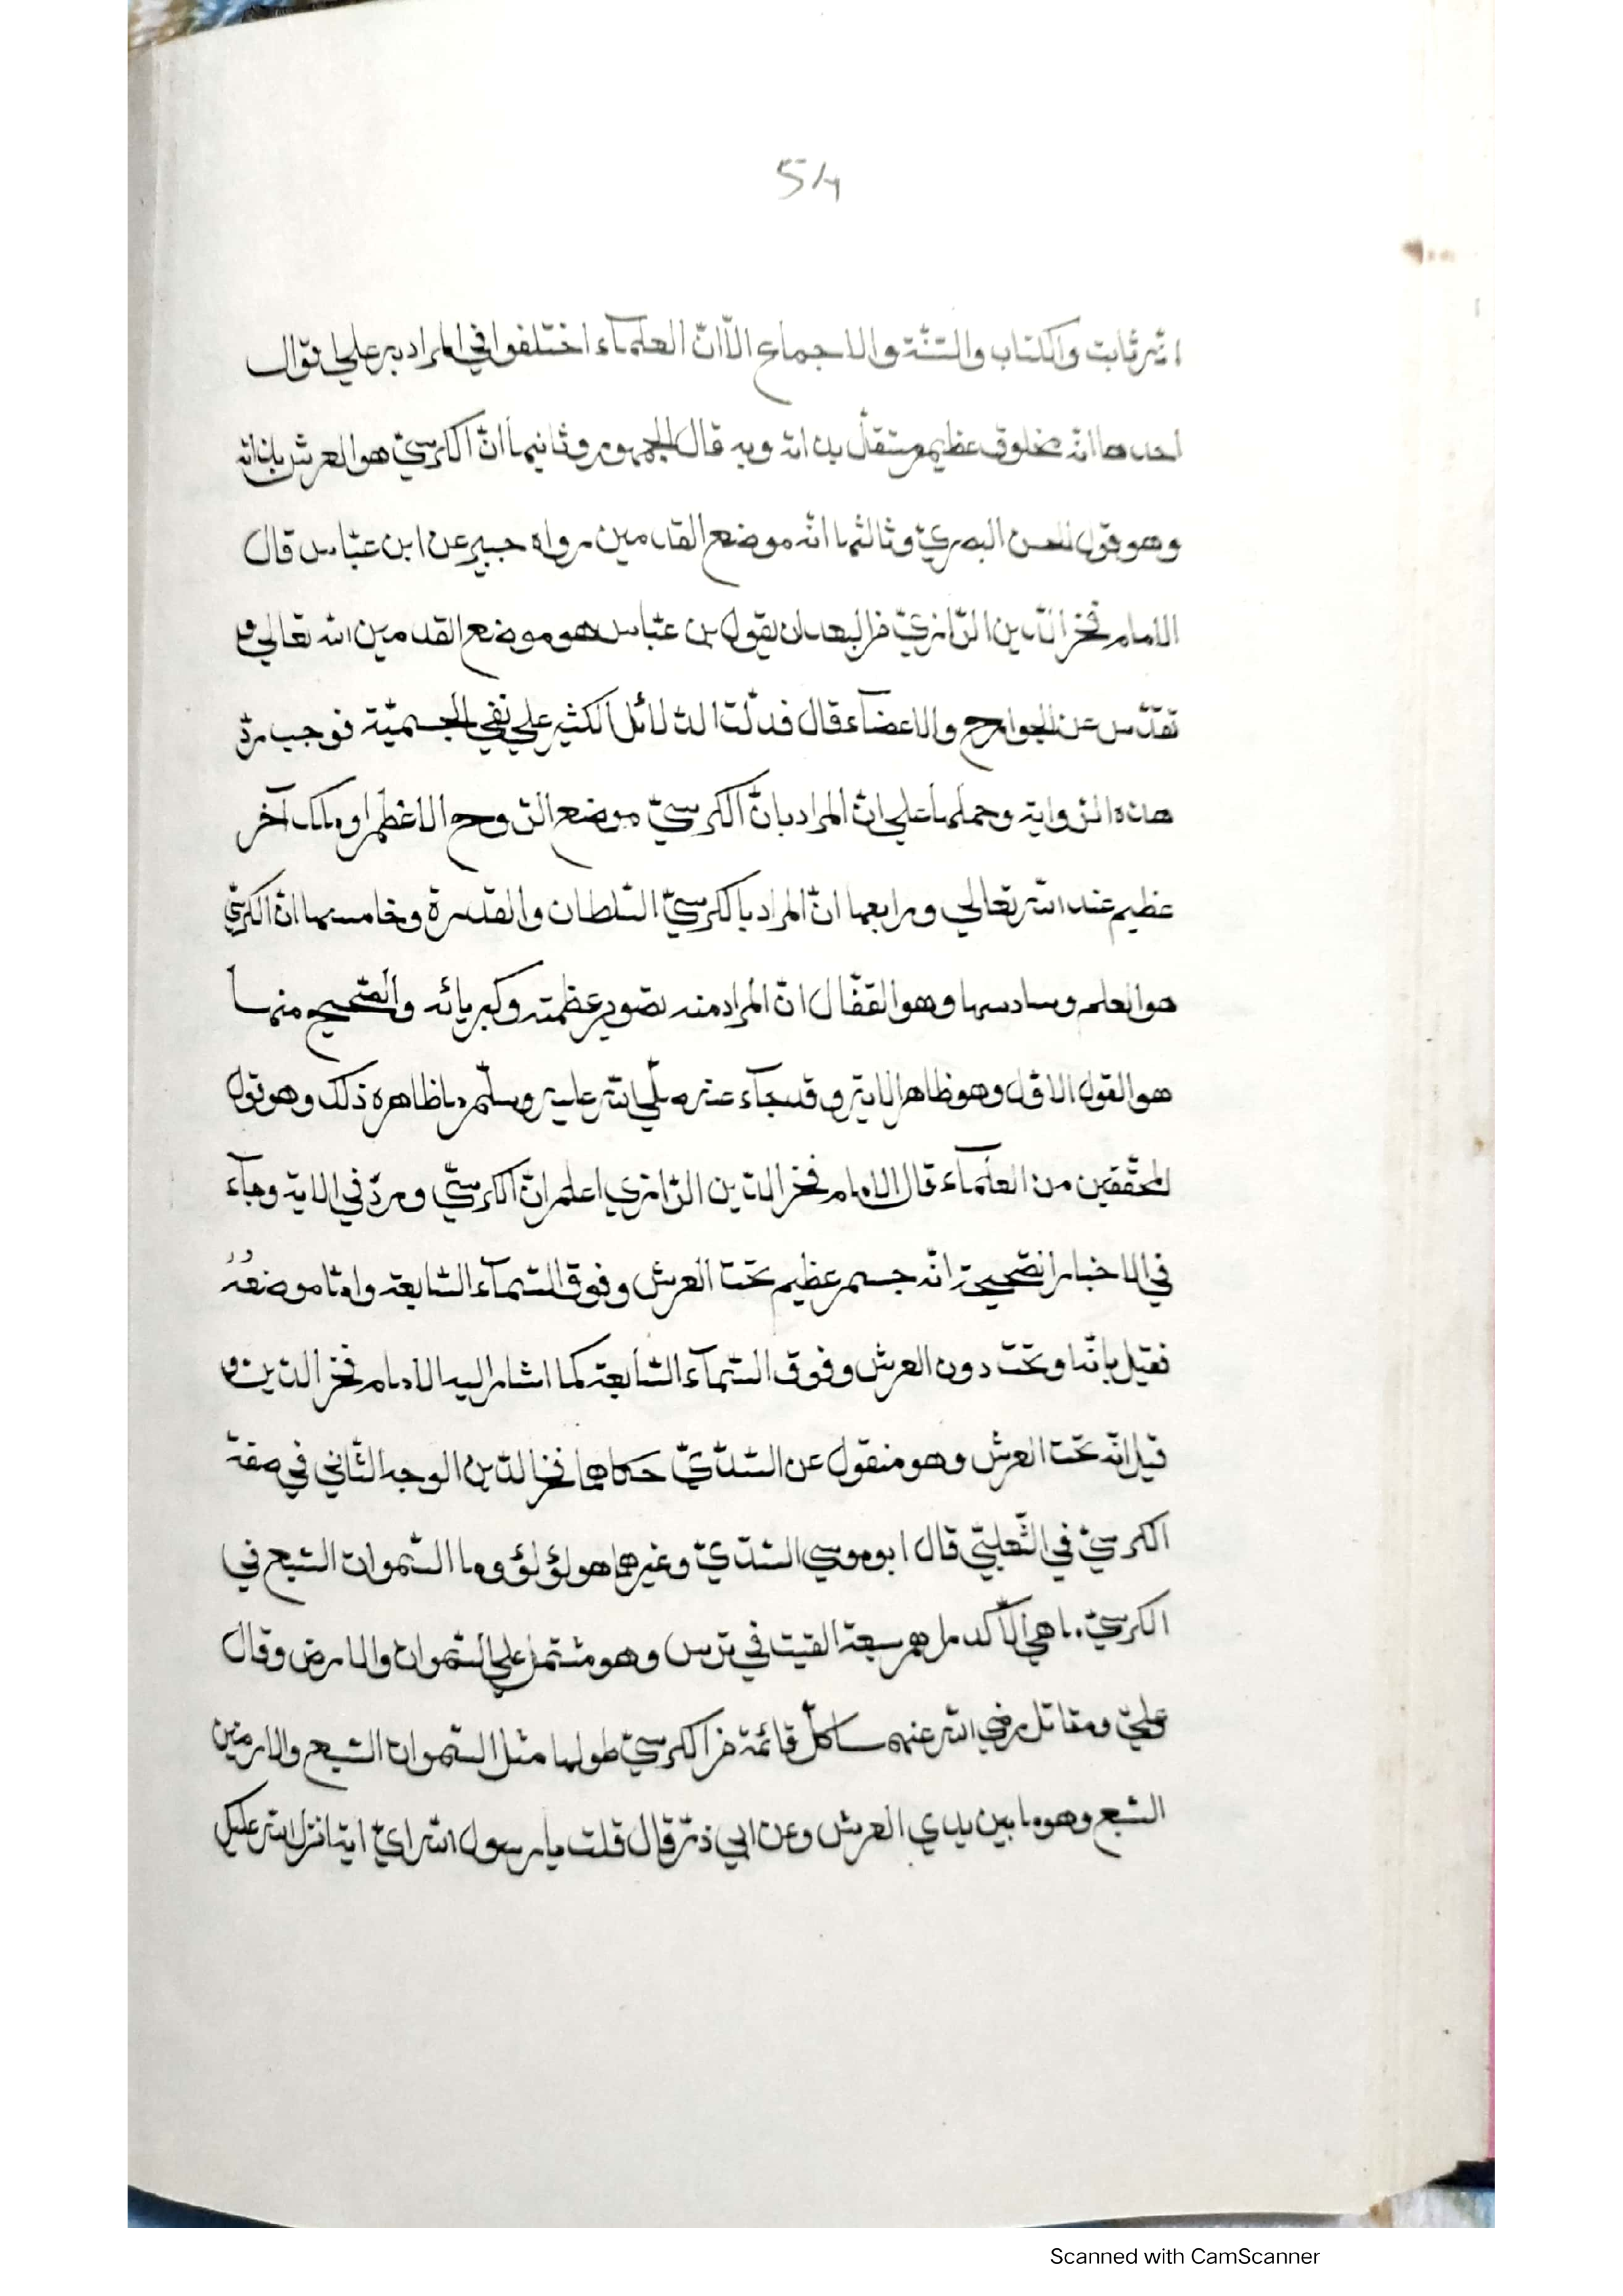 54
انّه ثابت والكتاب والسّنّة والاجماع الاّ انّ العلمآء اختلفوا في المراد به علي اقوال
احدها انّه مخلوق عظيم مستقلّ بذاته وبه قال الجمهور وثانيها انّ الكرسيّ هو العرش بذاته
وهو قول الحسن البصريّ وثالثها انّه موضع القدمين رواه جبير عن ابن عبّاس قال
الامام فخر الدّين الرّازيّ فمن البعد ان يقول بن عبّاس هو موضع القدمين الله تعالي و
تقدّس عن الجوارح والاعضآء قال فدلّت الدّلائل الكثير علي نفي الجسميّة فوجب ردّ
هذه الرّواية وحملها علي انّ المراد بانّ الكرسيّ موضع الرّوح الاعظم او ملك آخر
عظيم عند الله تعالي ورابعها انّ المراد بالكرسيّ السّلطان والقدرة وخامسها انّ الكرسيّ
هو العلم وسادسها وهو القفّال انّ المراد منه تصوير عظمته وكبريائه والصّحيح منها
هو القول الاوّل وهو ظاهر الاية وقد جآء عنه صلّي الله عليه وسلّم ما ظاهره ذلك وهو قول
المحقّقين من العلمآء قال الامام فخر الدّين الرّازي اعلم انّ الكرسيّ ورد في الاية وجآء
في الاخبار الصّحيحة انّه جسم عظيم تحت العرش وفوق السّمآء السّابعة وامّا موضعُهُ
فقيل بانّها وتحت دون العرش وفوق السّمآء السّابعة كما اشار اليه الامام فخر الدّين و
قيل انّه تحت العرش وهو منقول عن السّدّيّ حكاهما فخر الدّين الوجه الثّاني في صفة
الكرسيّ في الثّعلبيّ قال ابو موسي السّدّيّ وغيرهما هو لؤلؤ وما السّموات السّبع في
الكرسيّ ما هي الاّ كدراهم سبعة القيت في ترس وهو مشتمل علي السّموات والارض وقال
عليّ ومقاتل رضي الله عنهما كلّ قائمة من الكرسيّ طولها مثل السّموات السّبع والارضين
السّبع وهو ما بين يدي العرش وعن ابي ذرّ قال قلت يا رسول الله ايّ اية انزل الله عليك
Scanned with CamScanner